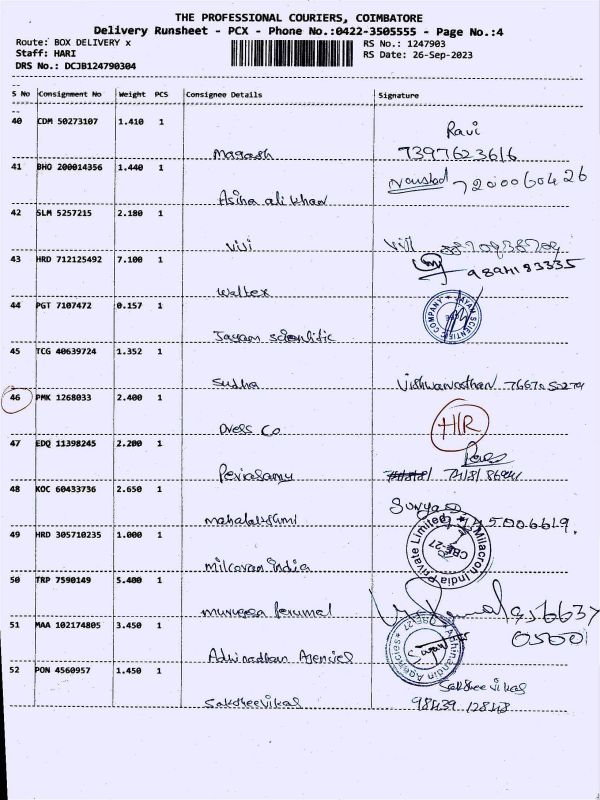 THE PROFESSIONAL COURIERS, COIMBATORE
Delivery Runsheet - PCX - Phone No.:0422-3505555 - Page No.:4
Route: BOX DELIVERY x RS No.: 1247903
Staff: HARI RS Date: 26-Sep-2023
DRS No.: DCJB124790304
S No Consignment No Weight PCS Consignee Details Signature
40 CDM 50273107 1.410 1 Ravi
Magash 7397623616
41 BHO 200014356 1.440 1 7200060426
Asina ali khan
42 SLM 5257215 2.180 1
Vivi Vivi
43 HRD 712125492 7.100 1 9894183335
Waltex
44 PGT 7107472 0.157 1
Jayam scientific
45 TCG 40639724 1.352 1
Sudha
46 PMK 1268033 2.400 1 HR
Dress Co
47 EDQ 11398245 2.200 1
Periasamy
48 KOC 60433736 2.650 1 Surya
Mahalakshmi
49 HRD 305710235 1.000 1 Milacron India Private Limited CBE-27
milcaran india
50 TRP 7590149 5.400 1
murugesa Perumal 956637
51 MAA 102174805 3.450 1 05001
Adhinadhan Agencies
52 PON 4560957 1.450 1 Sakthee Vikas
Saktheevikas 98439 12848